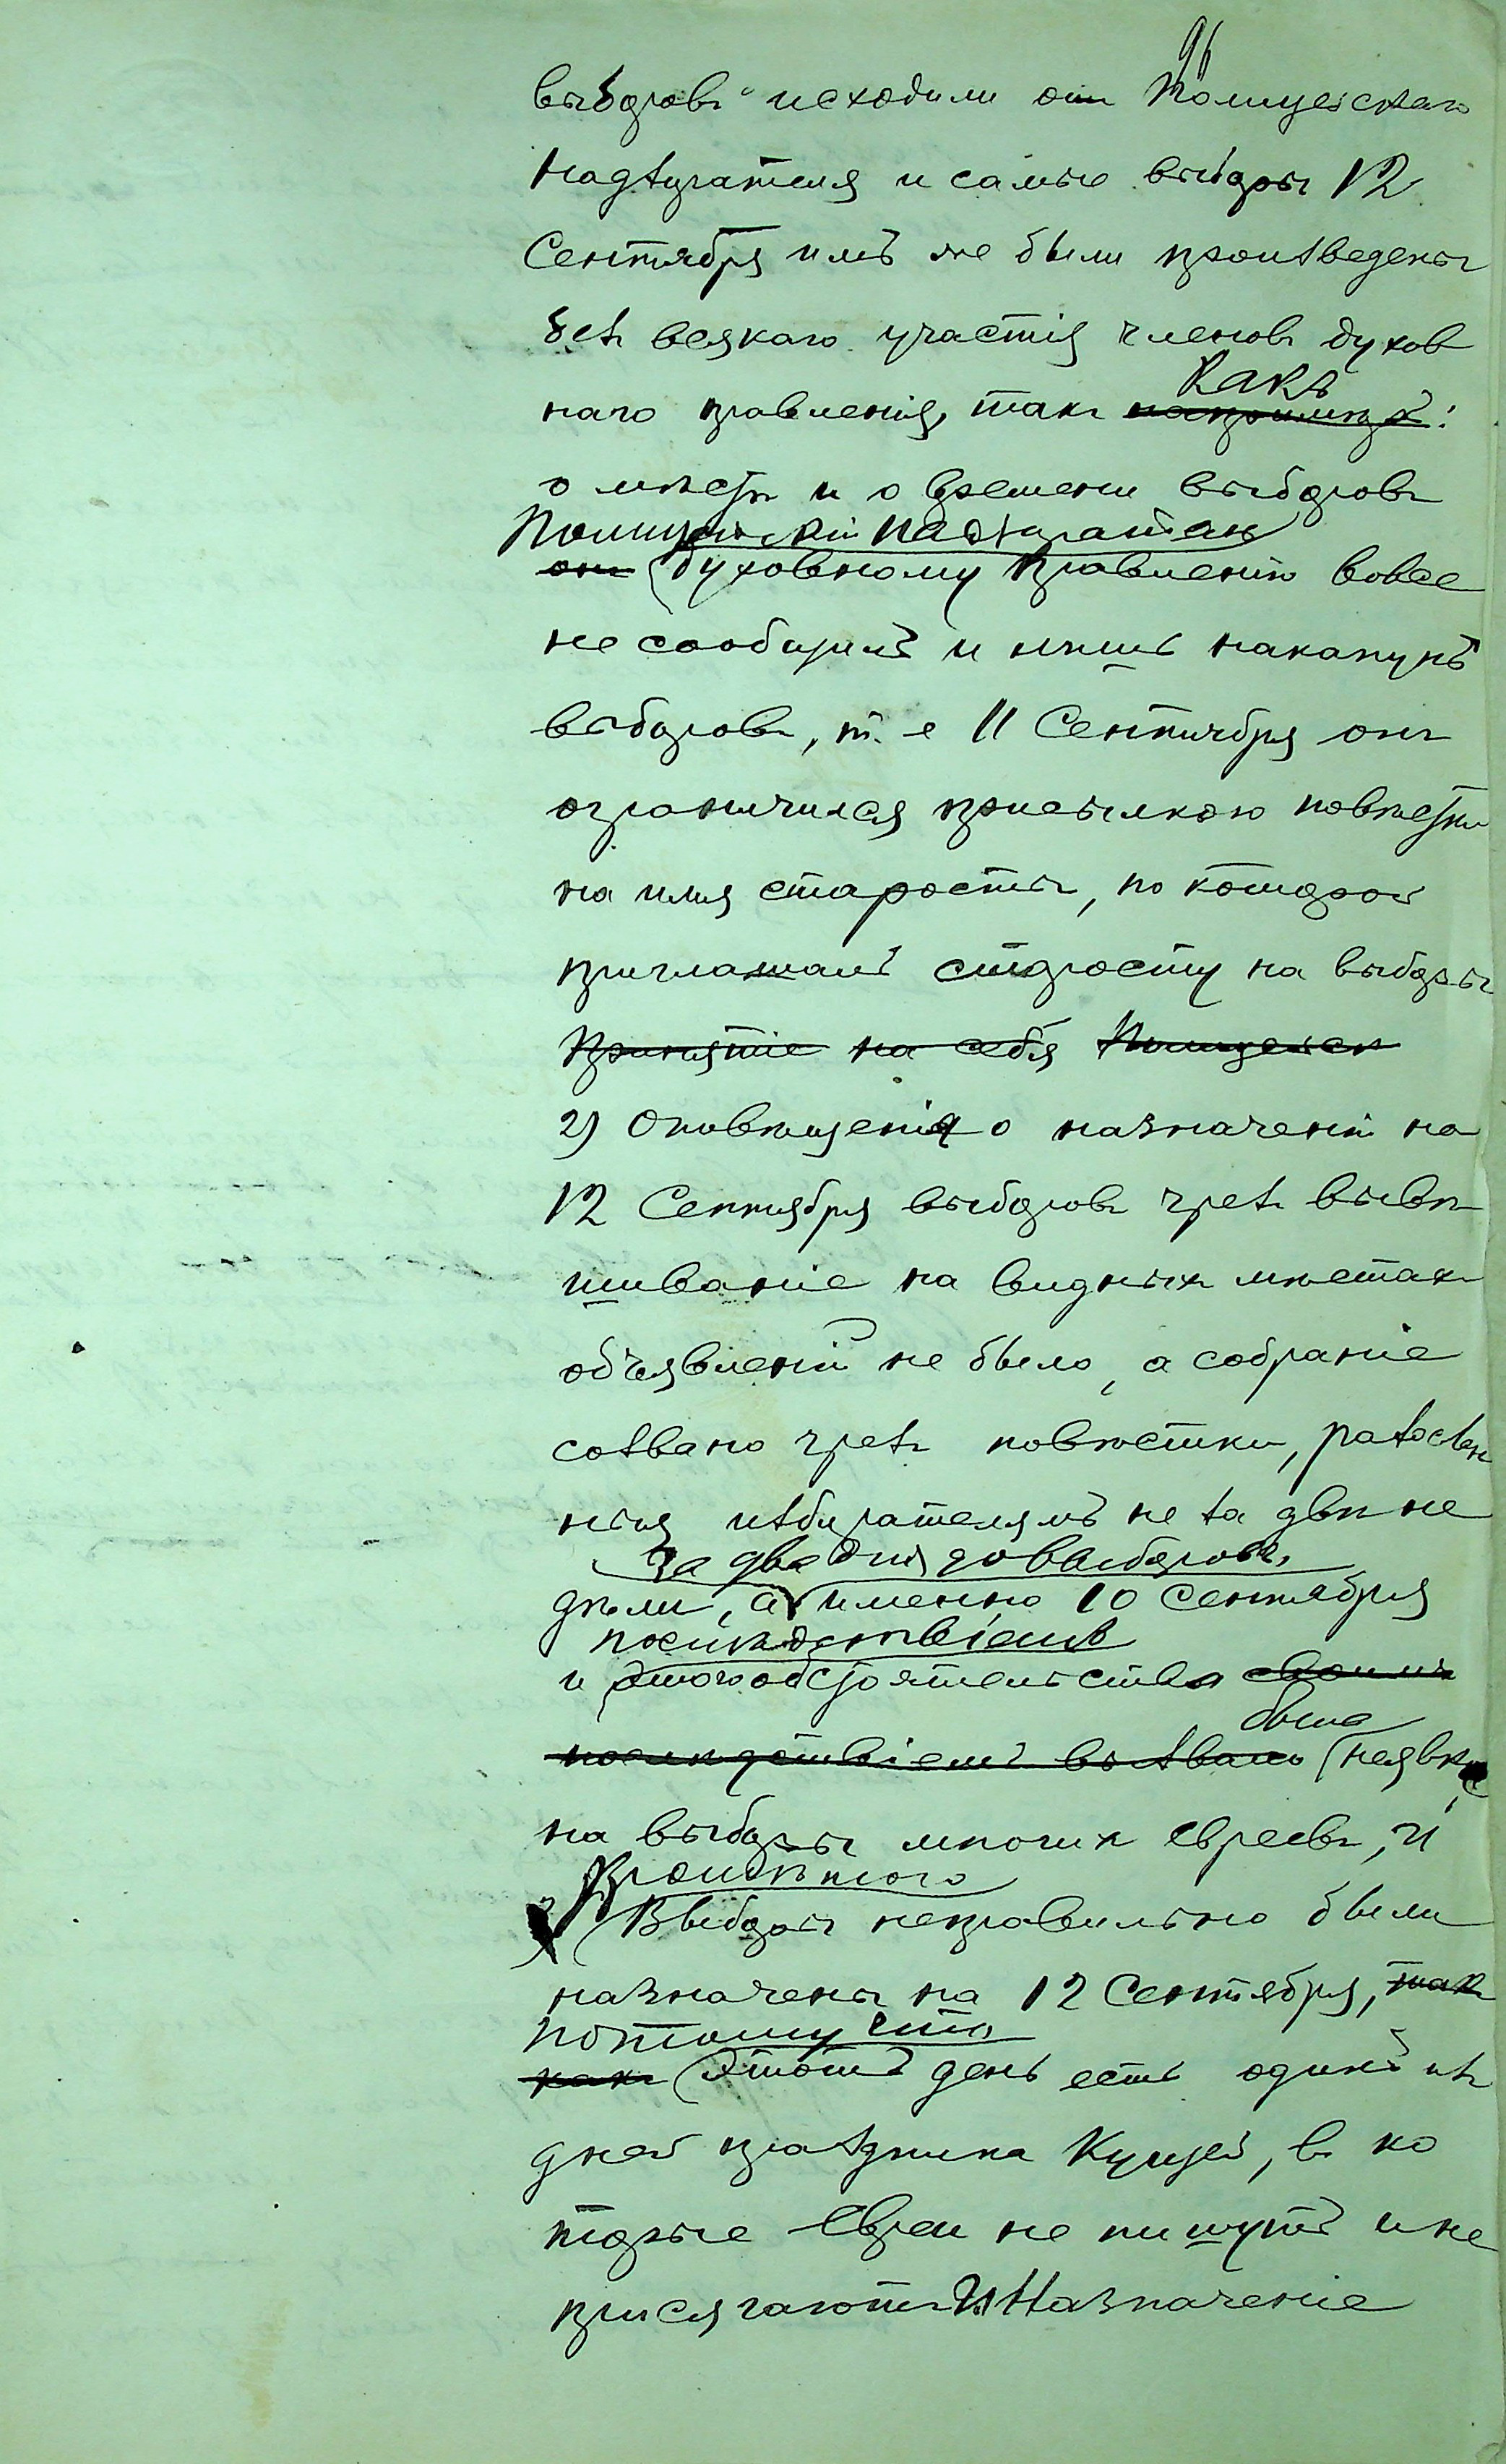 96
выборовъ" исходили отъ Полицейскаго
Надзирателя и самые выборы 12
Сентября имъ же были произведены
безъ всякаго участія членовъ духов
какъ
наго правленія, такъ например:
о мѣстѣ и о времени выборовъ
Полицейскій Надзиратель
онъ духовному правленію вовсе
не сообщилъ и лишь наканунѣ
выборовъ, т. е 11 Сентября онъ
ограничился присылкою повѣстки
на имя старосты, по которой
приглашалъ старосту на выборы
Принятіе на себя Полицейск
2) Оповѣщенія о назначеніи на
12 Сентября выборовъ чрезъ вывѣ
шиваніе на видныхъ мѣстахъ
объявленій не было, а собраніе
созвано чрезъ повѣстки, разослан
ныя избирателямъ не за двѣ не
за два дня до выборовъ,
дѣли, а именно 10 Сентября
послѣдствіемъ
и этого обстоятельства своимъ
была
послѣдствіемъ вызвало неявка
на выборы многихъ евреевъ, и
Кромѣ того
3) Выборы неправильно были
назначены на 12 Сентября, такъ
потому что
какъ этотъ день есть одинъ изъ
дней праздника Кущей, въ ко
торые Евреи не пишутъ и не
присягаютъ И Назначеніе